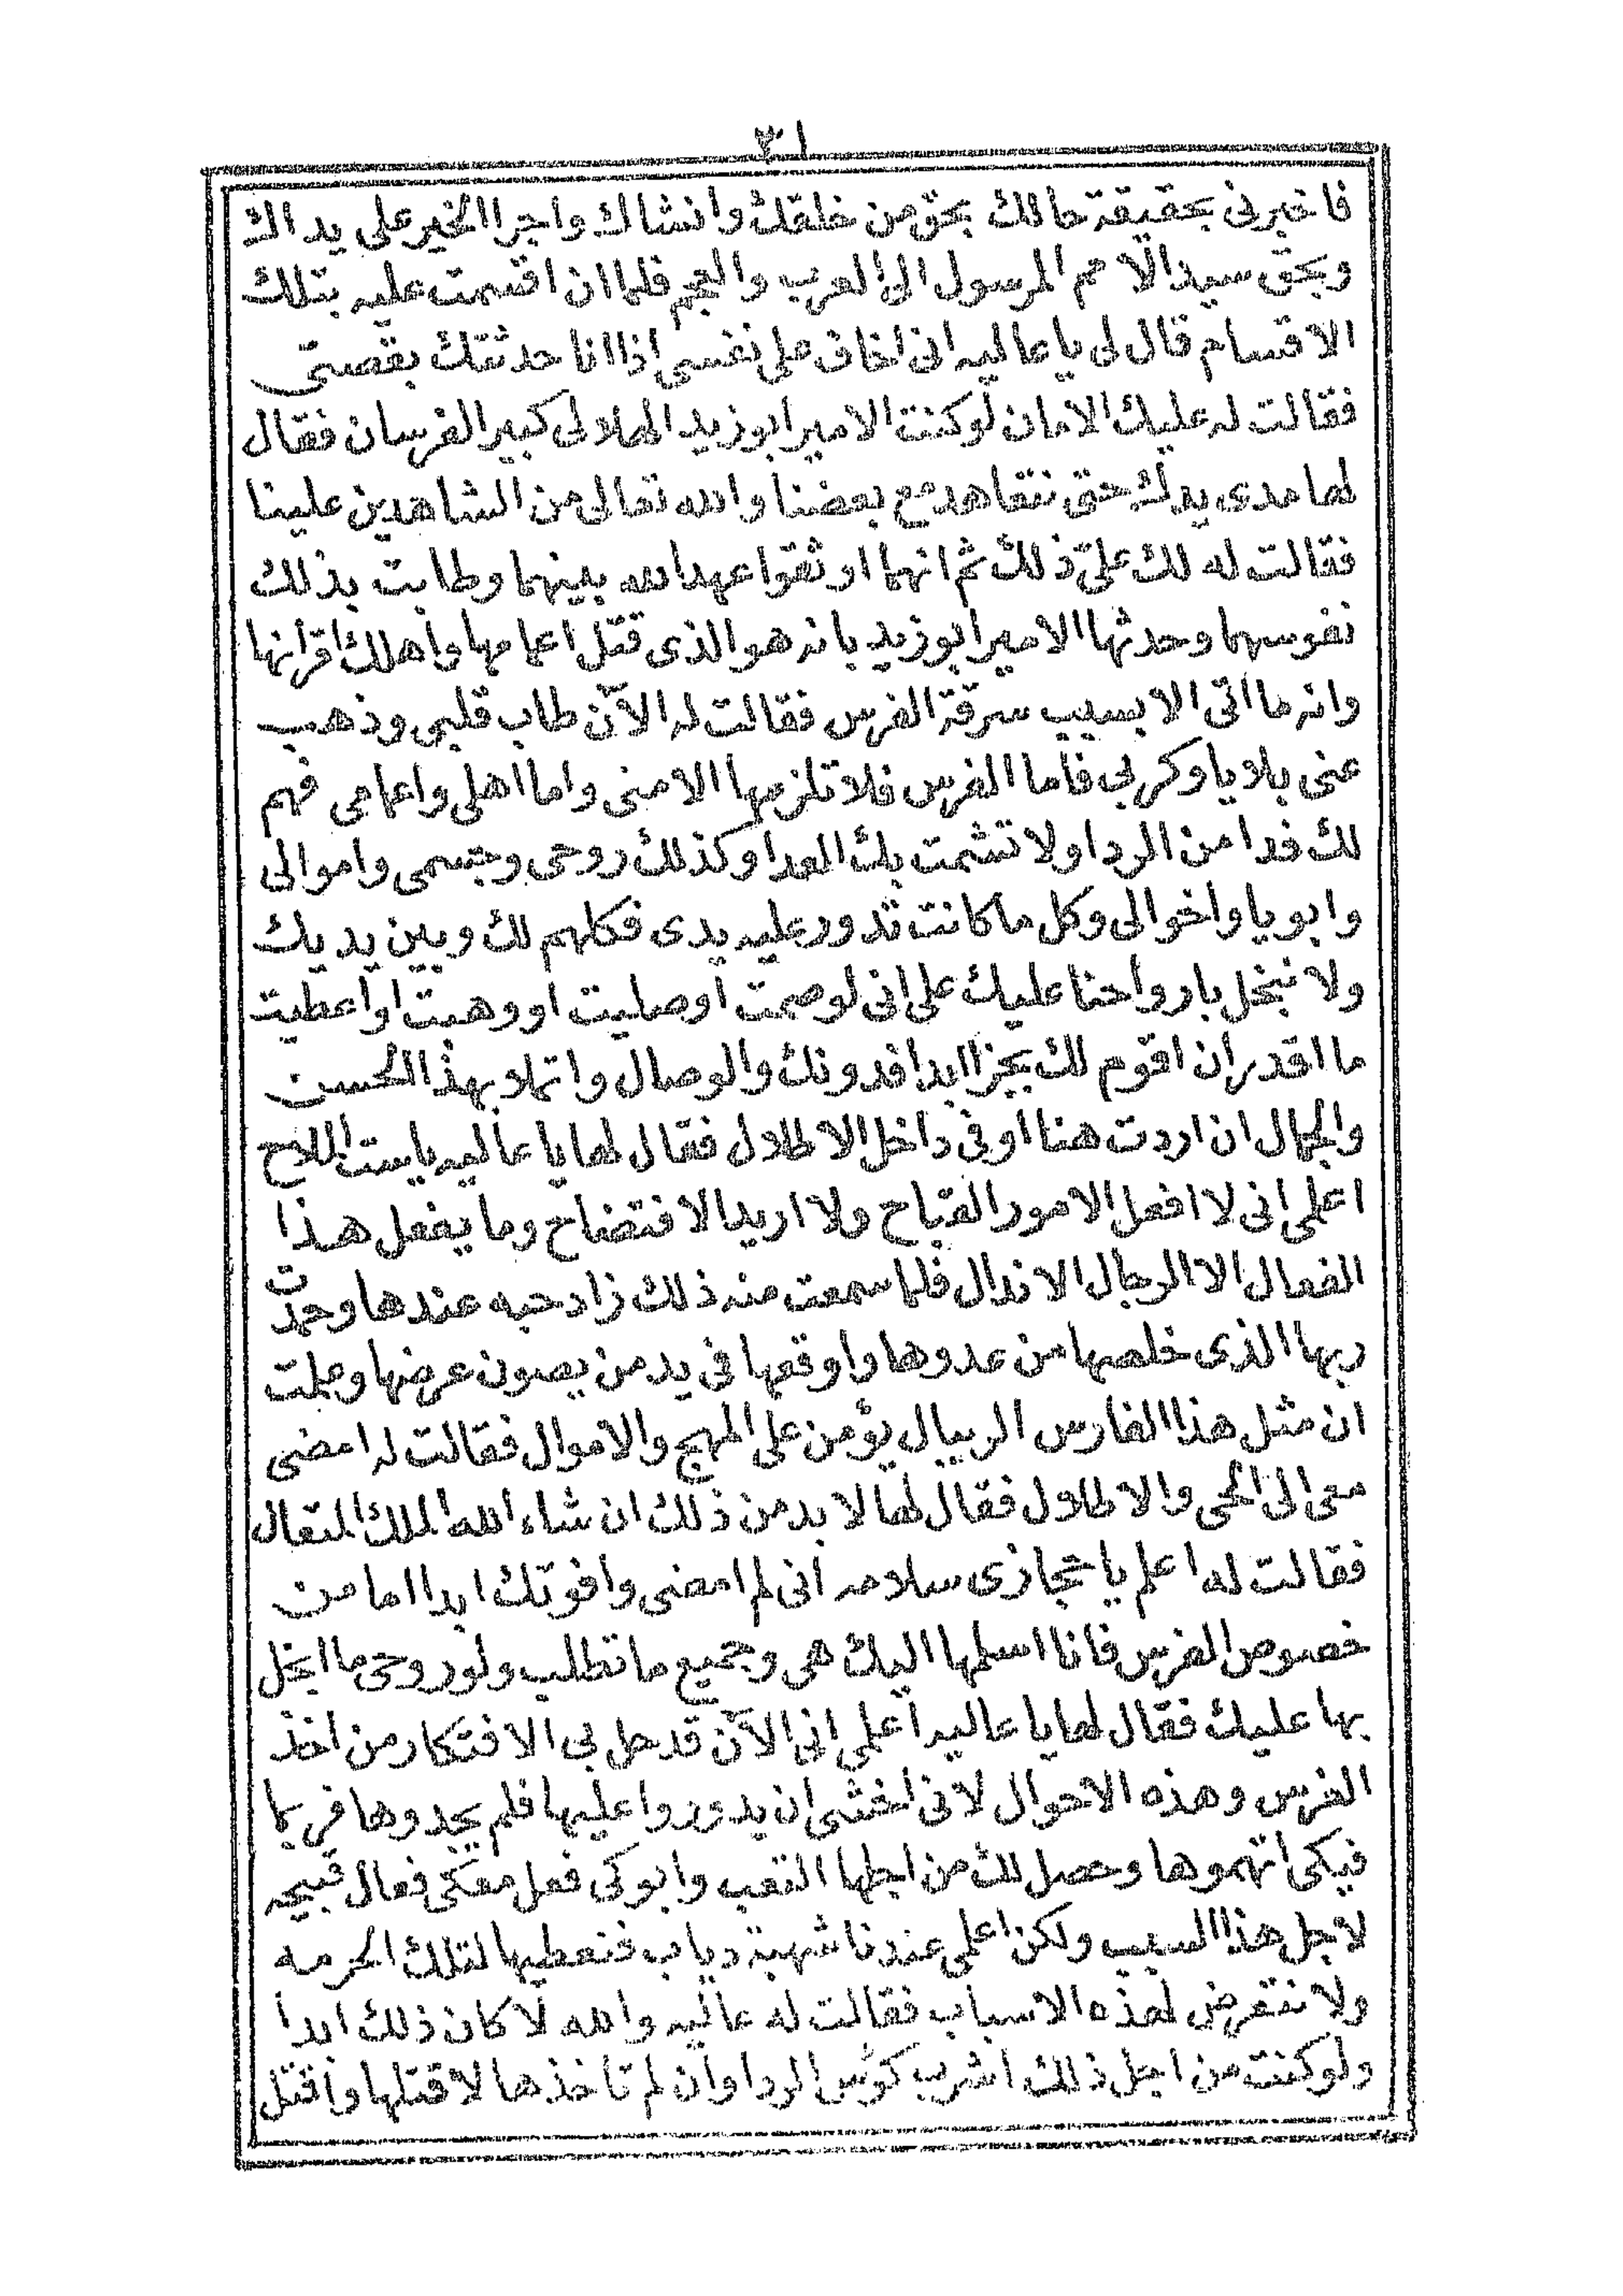 ٣١
فاخبرنى بحقيقة حالك بحق من خلقك وانشاك واجرا الخير على يداك
وبحق سيد الامم المرسول الى العرب والعجم فلما ان اقسمت عليه بتلك
الاقسام قال لى يا عاليه انى اخاف على نفسى اذا انا حدثتك بقصتى
فقالت له عليك الامان لو كنت الامير ابو زيد الهلالى كبير الفرسان فقال
لها مدى يدك حتى نتعاهد مع بعضنا والله تعالى من الشاهدين علينا
فقالت له لك علىّ ذلك ثم انهما اوثقوا عهد الله بينهما وطابت بذلك
نفوسهما وحدثها الامير ابو زيد بانه هو الذى قتل اعمامها واهلك اقرانها
وانه ما اتى الا بسبب سرقة الفرس فقالت له الآن طاب قلبى وذهب
عنى بلايا وكربى فاما الفرس فلا تلزمها الا منى واما اهلى واعمامى فهم
لك فدا من الردا ولا تشمت بك العدا وكذلك روحى وجسمى واموالى
وابويا واخوالى وكل ما كانت تدور عليه يدى فكلهم لك وبين يديك
ولا نبخل بارواحنا عليك على انى لو صمت او صليت او وهبت او اعطيت
ما اقدر ان اقوم لك بجزا ابدا فدونك والوصال واتملا بهذا الحسن
والجمال ان اردت هنا او فى داخل الاطلال فقال لها يا عاليه يا ست الملاح
اعلمى انى لا افعل الامور القباح ولا اريد الافتضاح وما يفعل هذا
الفعال الا الرجال الاندال فلما سمعت منه ذلك زاد حبه عندها وحمدت
ربها الذى خلصها من عدوها واوقعها فى يد من يصون عرضها وعلمت
ان مثل هذا الفارس الريبال يؤمن على المهج والاموال فقالت له امضى
معى الى الحى والاطلال فقال لها لا بد من ذلك ان شاء الله الملك المتعال
فقالت له اعلم يا حجازى سلامه انى لم امضى وافوتك ابدا اما من
خصوص الفرس فانا اسلمها اليك هى وجميع ما تطلب ولو روحى ما ابخل
بها عليك فقال لها يا عاليه اعلمى انى الآن قد حل بى الافتكار من اخذ
الفرس وهذه الاحوال لانى اخشى ان يدوروا عليها فلم يجدوها فربما
فيكى اتهموها وحصل لك من اجلها التعب وابوكى فعل معكى فعال قبيحه
لاجل هذا السبب ولكن اعلمى عندنا شهبة دياب فنعطيها لتلك الحرمه
ولا نتعرض لهذه الاسباب فقالت له عاليه والله لا كان ذلك ابدا
ولو كنت من اجل ذلك اشرب كؤس الردا وان لم تاخذها لاقتلها واقتل